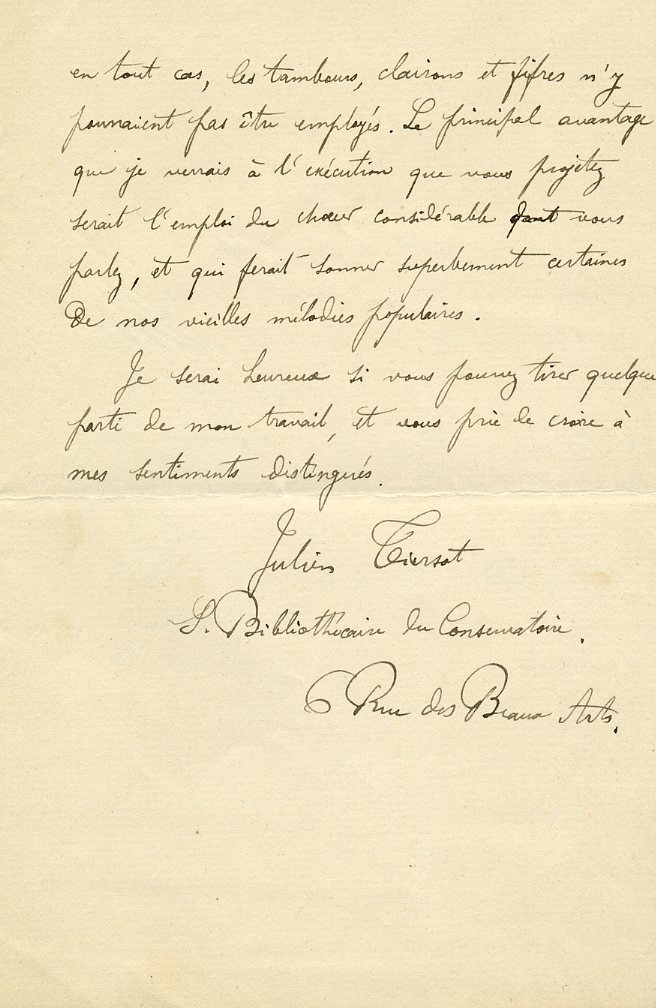 en tout cas, les tambours, clairons et fifres n'y
pourraient pas être employés. Le principal avantage
que je verrais à l'exécution que vous projetez
serait l'emploi du chœur considérable dont vous
parlez, et qui ferait sonner superbement certaines
de nos vieilles mélodies populaires.
Je serai heureux si vous pouvez tirer quelque
parti de mon travail, et vous prie de croire à
mes sentiments distingués.
Julien Tiersot
S. Bibliothécaire du Conservatoire.
6 Rue des Beaux Arts.